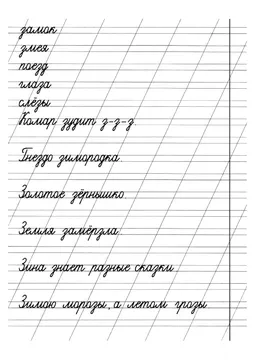 замок
змея
поезд
глаза
слёзы
Комар зудит з-з-з.
Гнездо зимородка.
Золотое зёрнышко.
Земля замёрзла.
Зина знает разные сказки.
Зимою морозы, а летом грозы.